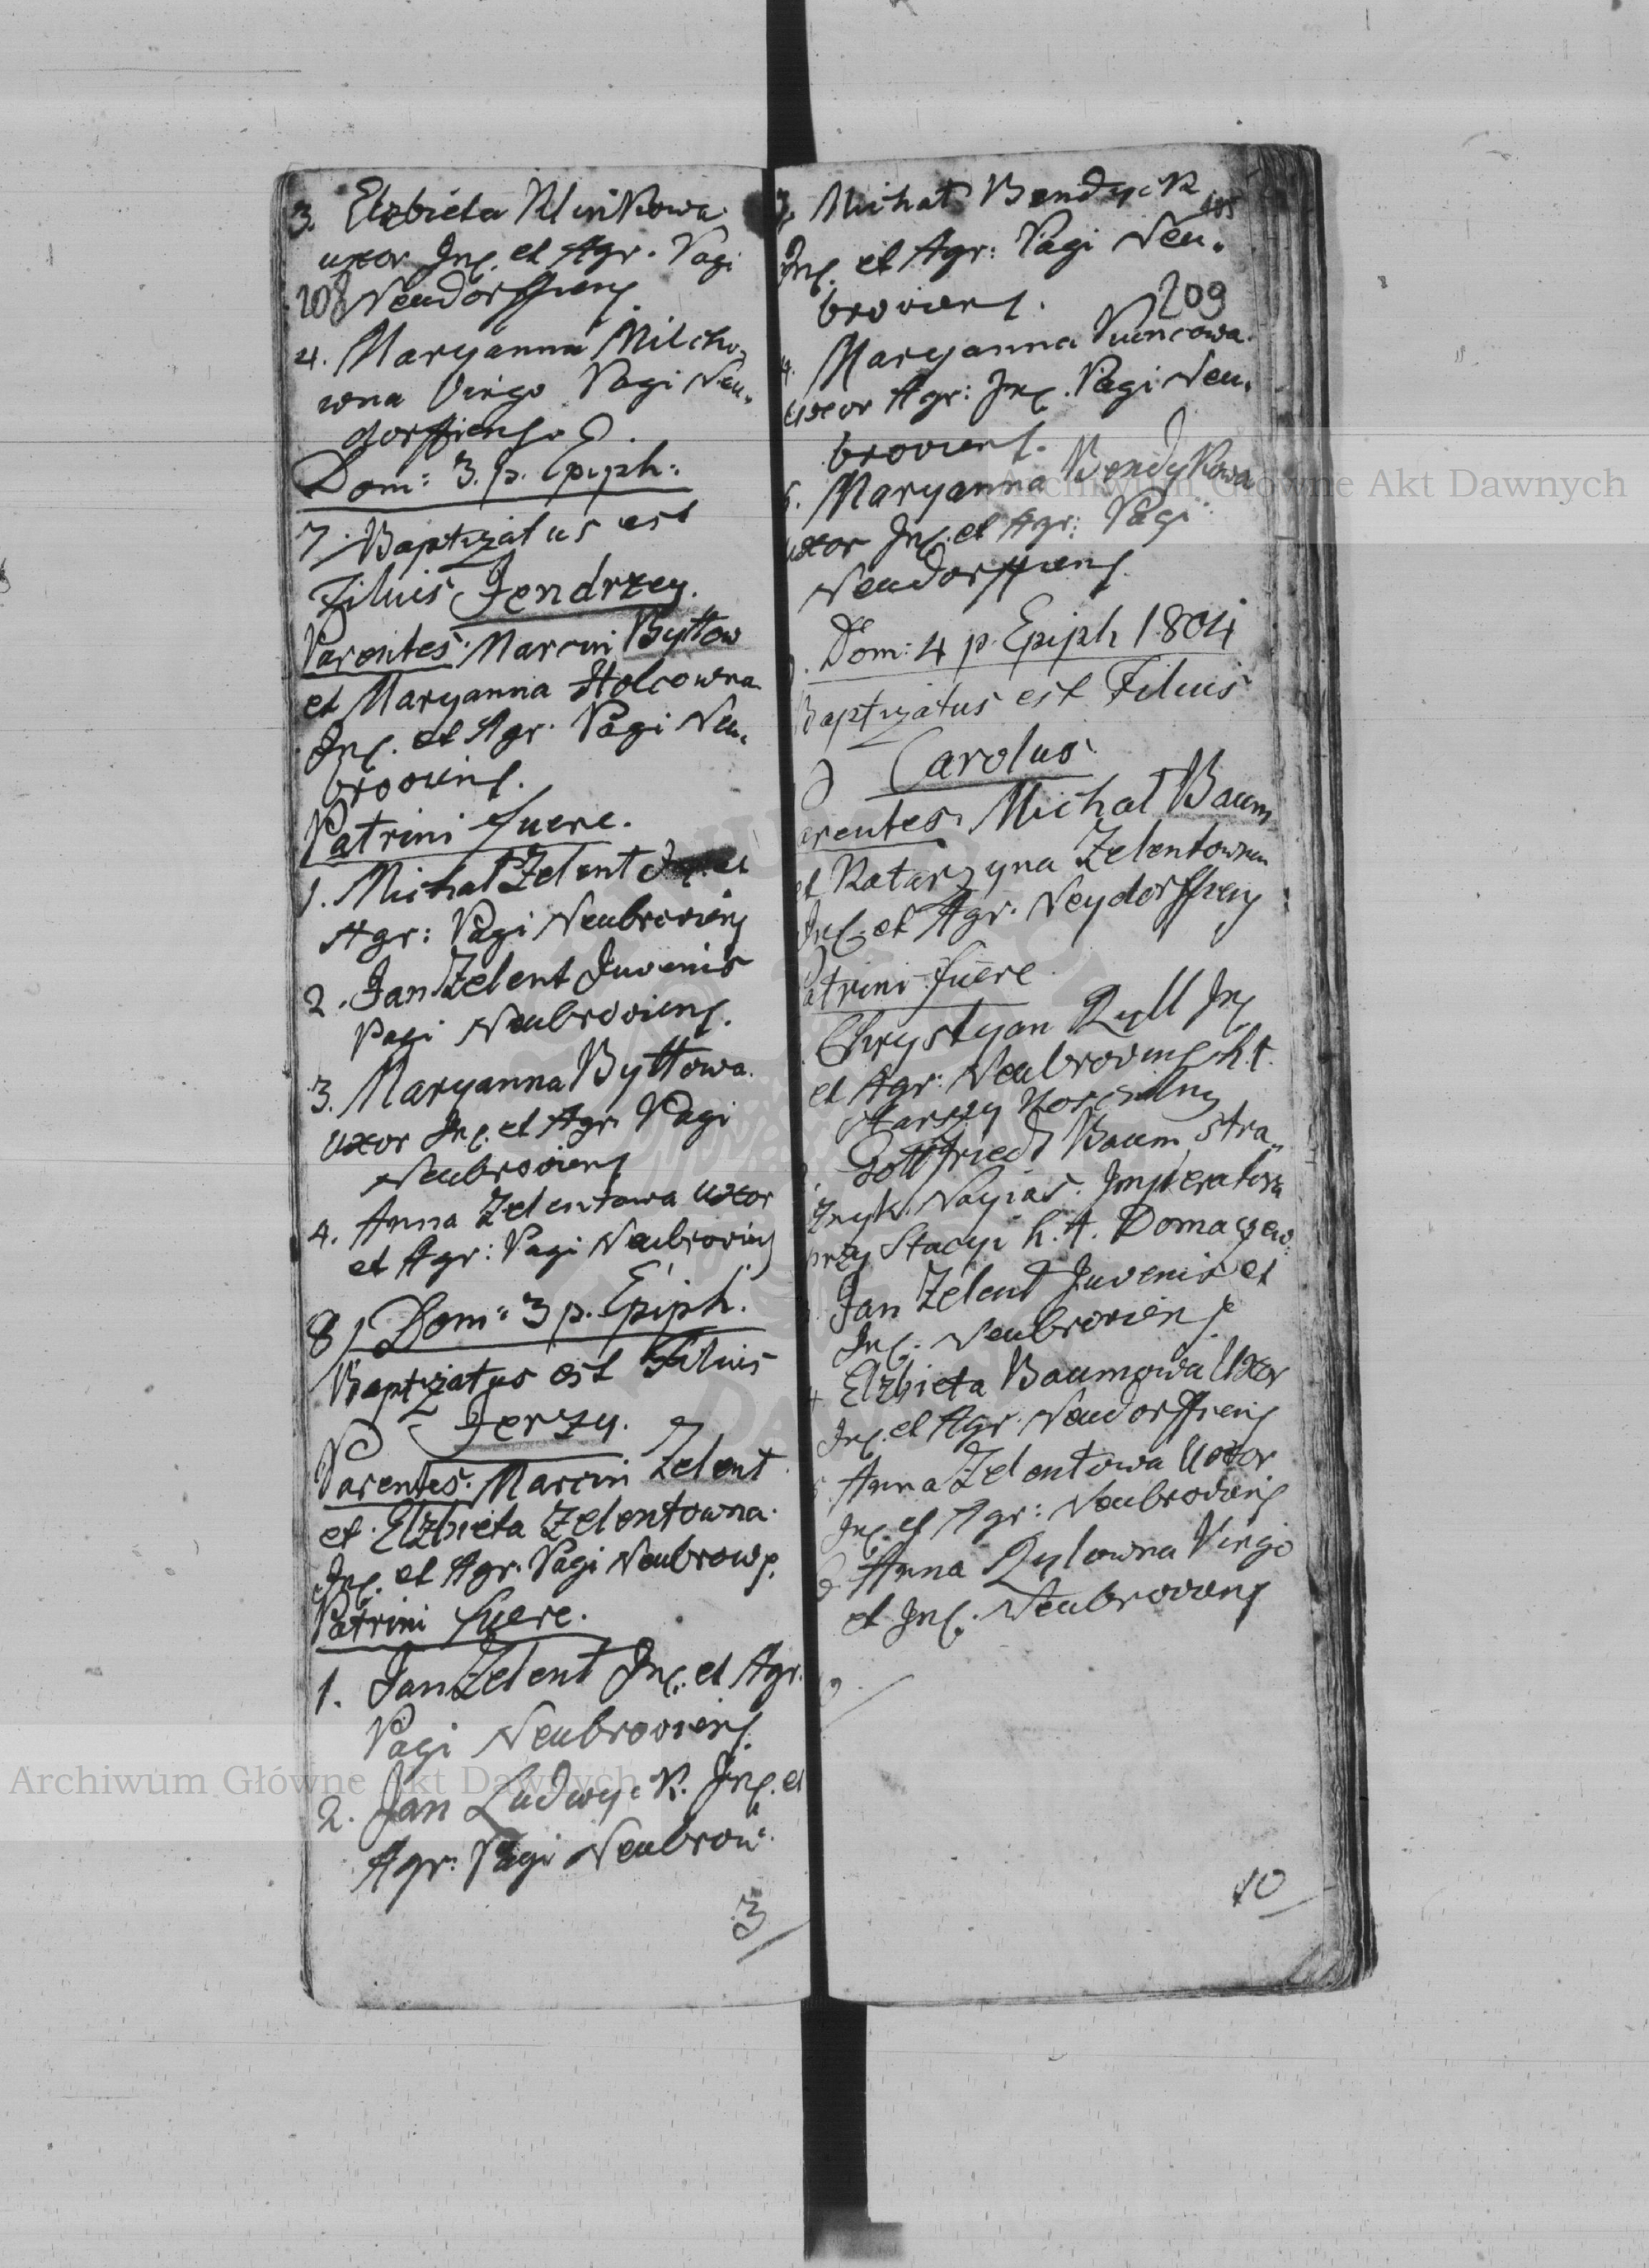 3. Elzbieta Klinkowa
uxor Inq. et Agr. Vagi
208 Neudorffiens
4. Maryanna Milcho„
wna Virgo Vagi Neu„
dorffiens
Dom: 3. p. Epiph:
7. Baptizatus est
Filius Jendrzey.
Parentes: Marcin Byttow
et Maryanna Holcowna
Inq. et Agr. Vagi Neu„
broviens.
Patrini fuere.
1. Michal Zelent et
Agr: Vagi Neubroviens
2. Jan Zelent Juvenis
Vagi Neubroviens.
3. Maryanna Byttowa.
uxor Inq. et Agr. Vagi
Neubroviens
4. Anna Zelentowa uxor
et Agr: Vagi Neubroviens
8) Dom: 3 p. Epiph.
Baptizatus est Filius
Jerzy.
Parentes: Marcin Zelent
et Elzbieta Zelentowna.
Inq. et Agr. Vagi Neubrow
Patrini fuere.
1. Jan Zelent Inq. et Agr.
Vagi Neubroviens.
2. Jan Ludwyk. Inq. et
Agr: Vagi Neubrov:
3
3. Michał Bendyck
105
Inq. et Agr: Vagi Neu„
broviens. 209
4. Maryanna Kuncowa
uxor Agr: Inq. Vagi Neu„
broviens.
5. Maryanna Bendykowa
uxor Inq. et Agr: Vagi
Neudorffiens.
Dom: 4 p. Epiph 1804
Baptizatus est Filius
Carolus
arentes. Michal Baum
et Katarzyna Zelentowna
Inq. et Agr. Neydorffiens
Patrini fuere
Chrystyan Ryll Inq
et Agr: Neubroviens h.t.
Starszy Koscielny
Gottfried Baum Stra„
żnyk Nayias. Imperatora
przy Stacyi h. t. Domaczew:
Jan Zelent Juvenis et
Inq. Neubroviens
4 Elzbieta Baumowa Uxor
Inq. et Agr. Neudorffiens
Anna Zelentowa Uxor
Inq. et Agr: Neubroviens
6 Anna Rylowna Virgo
et Inq. Neubroviens
9.
10
Archiwum Główne Akt Dawnych
Archiwum Główne Akt Dawnych